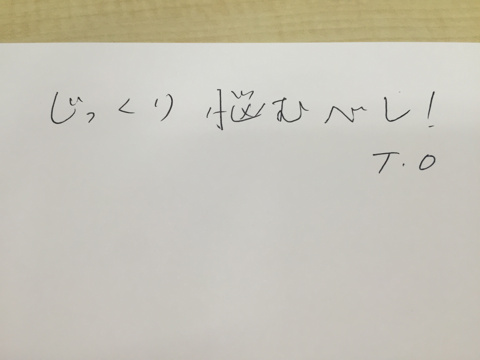 じっくり 悩むべし!
T.O